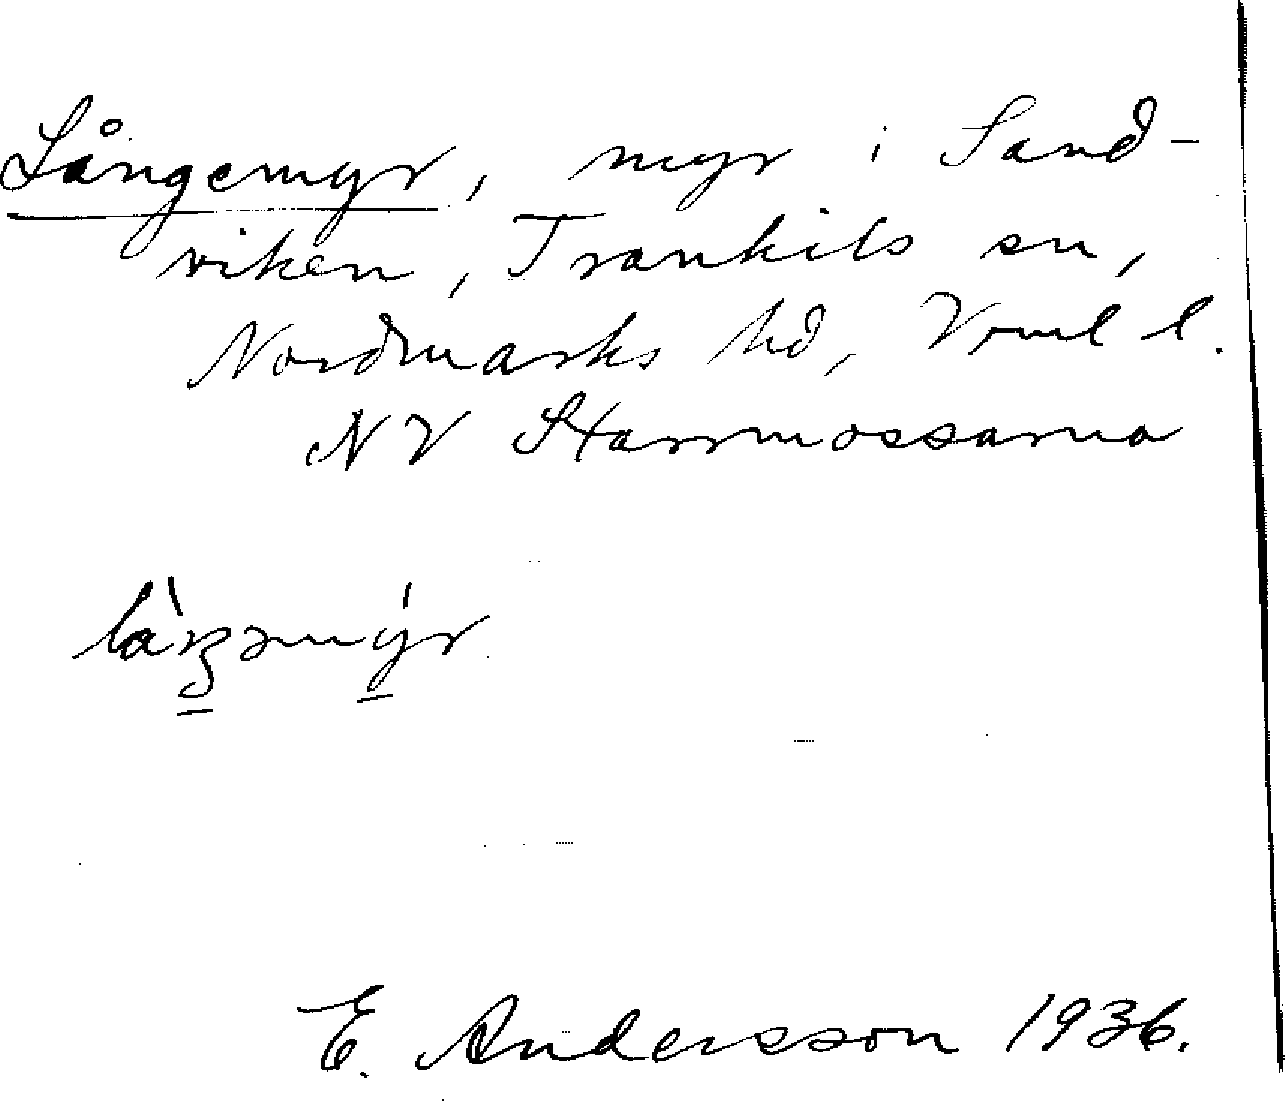 Långemyr, myr i Sand-
viken, Trankils sn,
Nordmarks hd, Vrml l.
NV Starrmossarna
E. Andersson 1936.